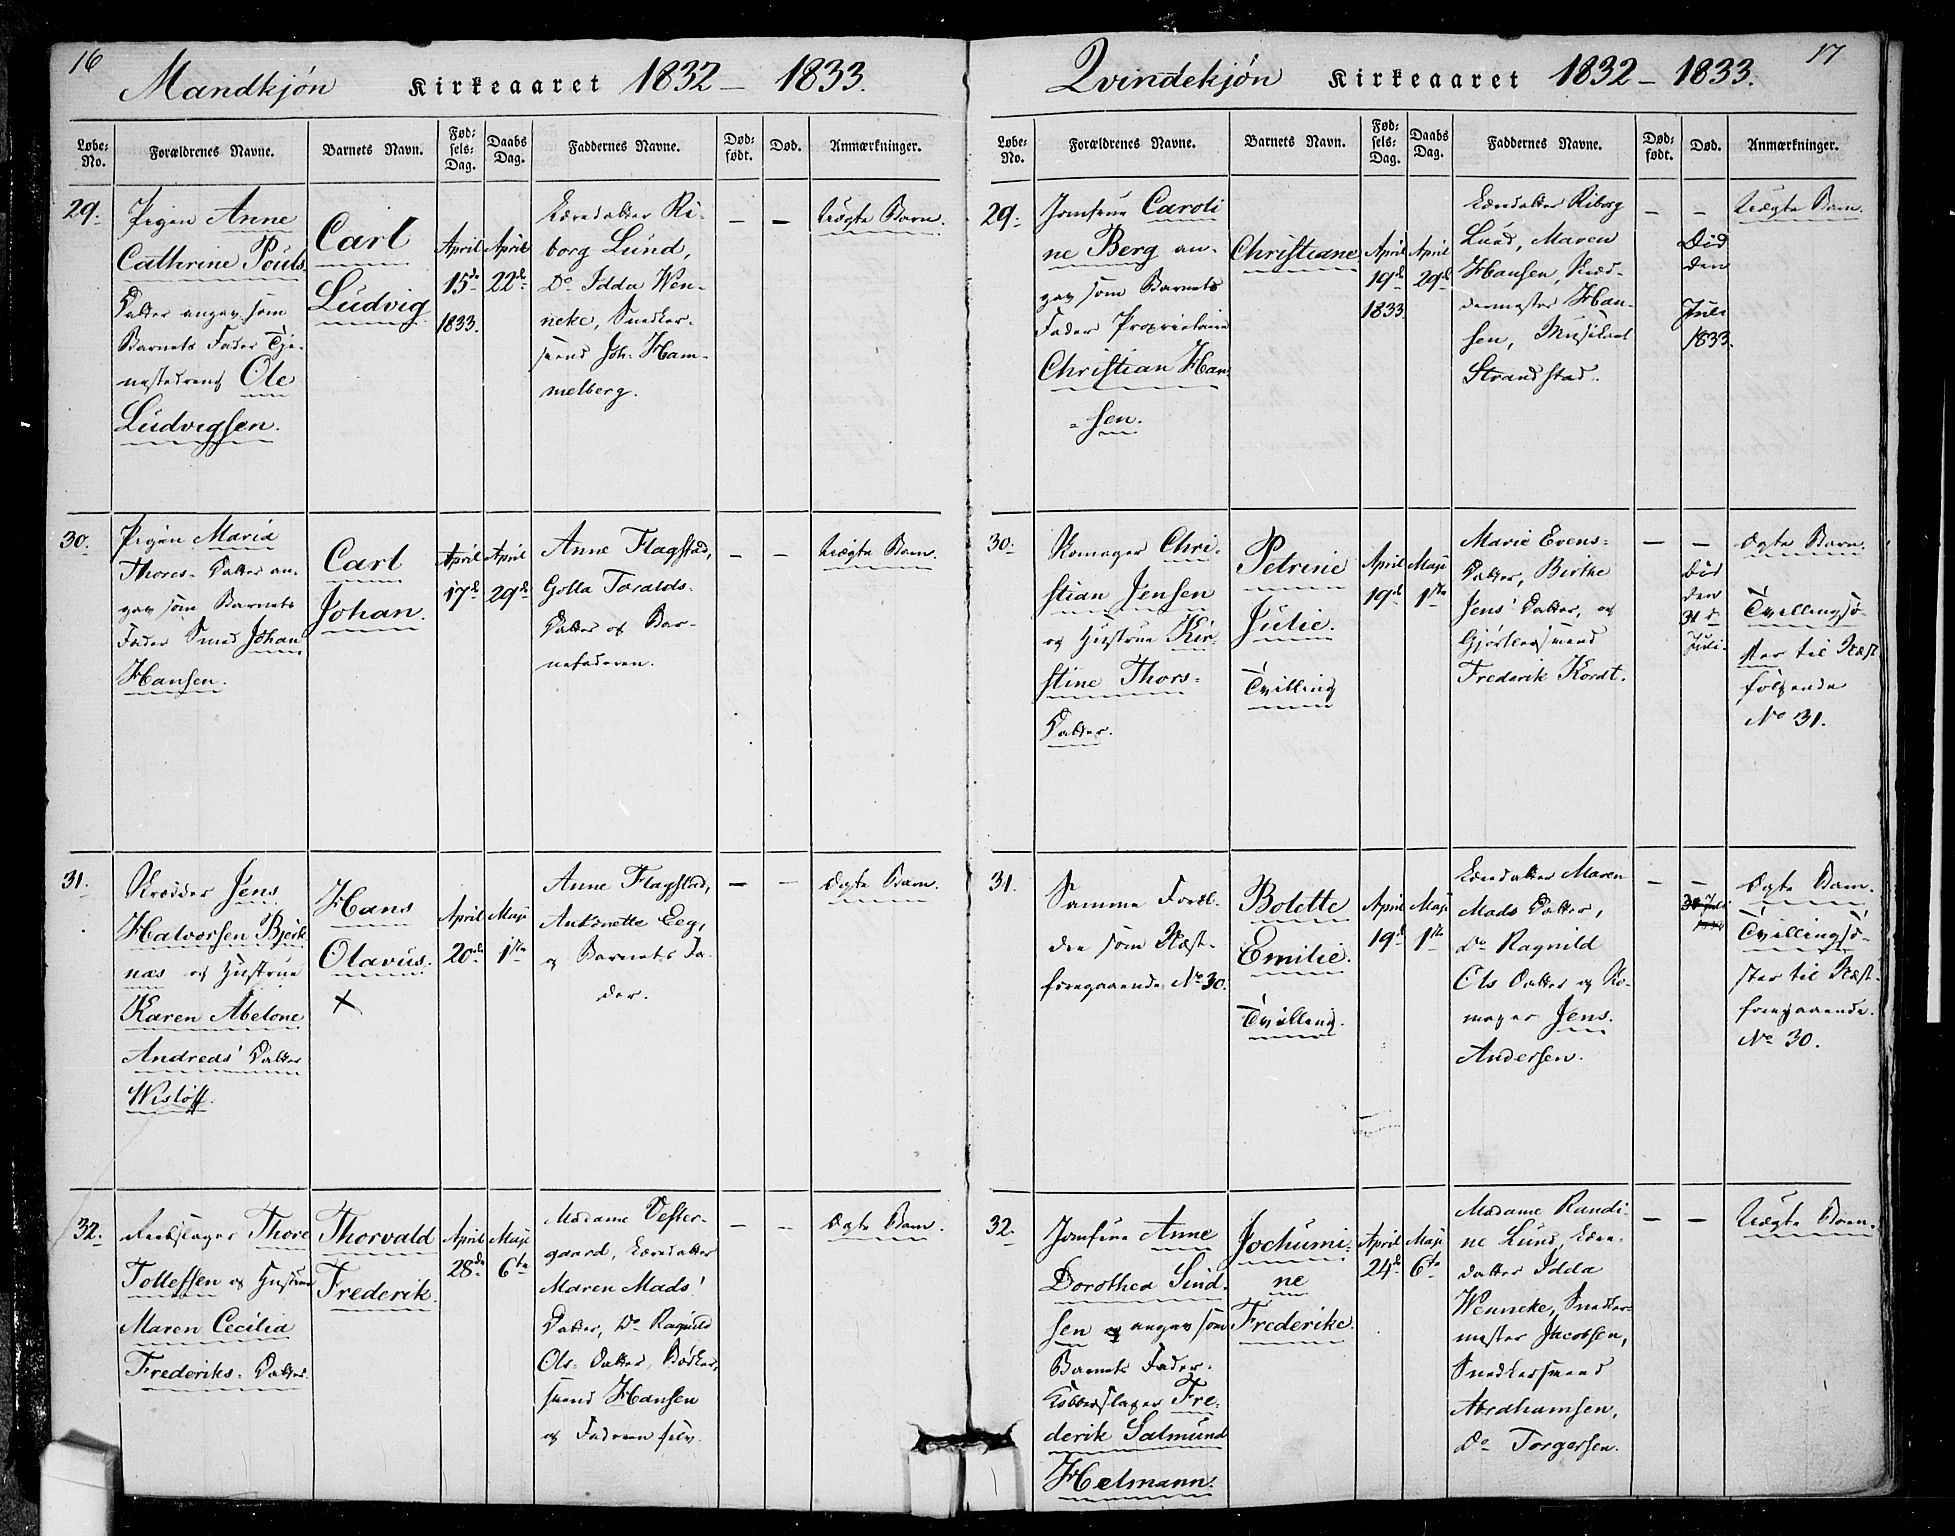 16
Mandkjøn Kirkeaaret 1832 – 1833.
Løbe-No.
Forældrenes Navne.
Barnets Navn.
Fød-sels-Dag.
Daabs Dag.
Faddernes Navne.
Død-født.
Død.
Anmærkninger.
29.
Pigen Anne
Cathrine Pouls
Datter angav som
Barnets Fader Tje-
nestedreng Ole
Ludvigsen.
Carl
Ludvig
April
15de
1833.
April
22de
Eeredatter Ri-
borg Lund,
Do Idda Wen-
neke, Snedker-
svend Joh. Ham-
melberg.
– –
Uægte Barn.
30.
Pigen Maria
Thores-Datter an-
gav som Barnets
Fader Smed Johan
Hansen.
Carl
Johan.
April
17de
April
29de
Anne Flagstad,
Golla Taralds-
Datter og Bar-
nefaderen.
– –
Uægte Barn.
31.
Skrædder Jens
Halvorsen Bjerk
næs og Hustrue
Karen Abelone
Andreas' Datter
Wisløff.
Hans
Olavus.
×
April
20de
Maji
1ste
Anne Flagstad,
Antonette Eeg,
og Barnets Fa-
der.
– –
Ægte Barn.
32.
Reebslager Thore
Tollefsen og Hustrue
Maren Cecilia
Frederiks-Datter.
Thorvald
Frederik.
April
28de
Maji
6te
Madame Vester-
gaard, Eeredatter
Maren Mads'
Datter, Do Ragnild
Ols-Datter, Bødker-
svend Hansen
og Faderen selv.
– –
Ægte Barn.
17
Qvindekjøn Kirkeaaret 1832 – 1833.
Løbe-No.
Forældrenes Navne.
Barnets Navn.
Fød-sels-Dag.
Daabs Dag.
Faddernes Navne.
Død-født.
Død.
Anmærkninger.
29.
Jomfrue Caroli
ne Berg an-
gav som Barnets
Fader Proprietaire
Christian Han-
sen.
Christiane
April
19de
1833
April
29de
Eeredatter Riborg
Lund, Maren
Hansen,
dermester Han-
sen, Musikant
Strandstad.
– –
Død
den
Juli
1833.
Uægte Barn.
30.
Skomager Chri-
stian Jensen
og Hustrue Kir-
stine Thors-
Datter.
Petrine
Julie.
Tvilling
April
19de
Maji
1ste
Marie Evens-
Datter, Birthe
Jens' Datter, og
Gjørtlersvend
Frederik Kordt.
– –
Død
den
31te
Juli.
Ægte Barn.
Tvillingsø-
ster til Næst
følgende
No 31.
31.
Samme Foræl-
dre som Næst-
foregaaende No 30.
Bolette
Emilie.
Tvilling.
April
19de
Maji
1ste
Eeredatter Maren
Mads Datter,
Do Ragnild
Ols Datter og Sko-
mager Jens
Andersen.
– –
Ægte Barn.
Tvillingsø-
ster til Næst-
foregaaende.
No 30.
32.
Jomfrue Anne
Dorothea Sind-
sen angav som
Barnets Fader
Kobberslager Fre-
derik Salmund
Helmann.
Jochumi-
ne
Frederike.
April
24de
Maji
6te
Madame Randi-
ne Lund, Eere-
datter Idda
Wenneke, Snedker-
mester Jacobsen,
Snedkersvend
Abrahamsen,
Do Torgersen.
– –
Uægte Barn.